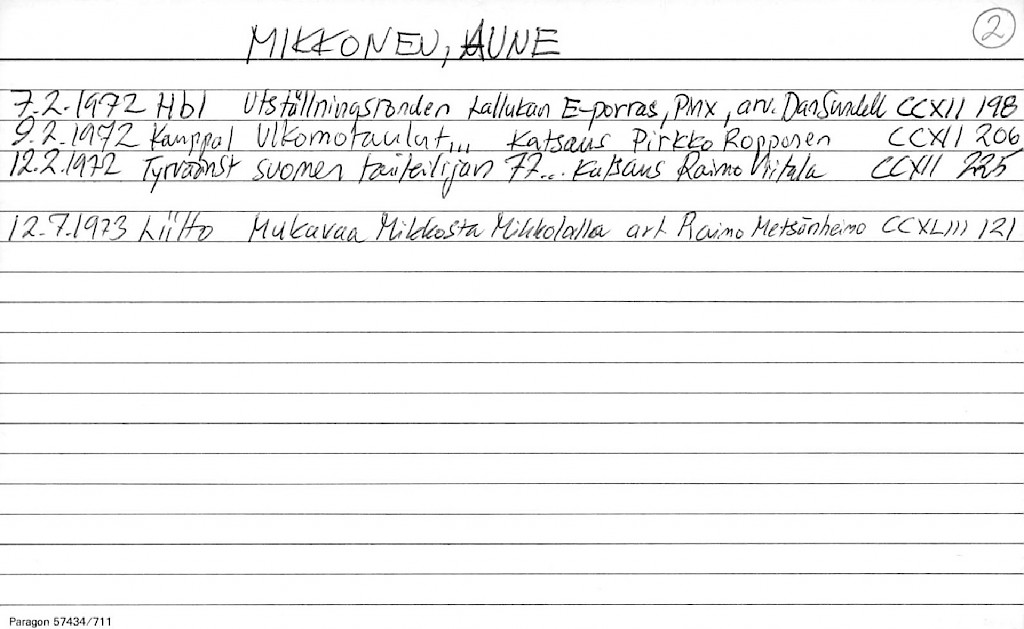 MIKKONEN, AUNE
2
7.2.1972 Hbl Utställningsronden Lallukan E-porras, PMX, arv. Dan Sundell CCXII 198
9.2.1972 Kauppal Ulkomotaulut... Katsaus Pirkko Ropponen CCXII 206
12.2.1972 Tyrväänst Suomen taiteilijan 77... Katsaus Raimo Viitala CCXII 225
12.7.1973 Liitto Mukavaa Mikkosta Mikkolalla art. Raimo Metsänheimo CCXLIII 121
Paragon 57434/711